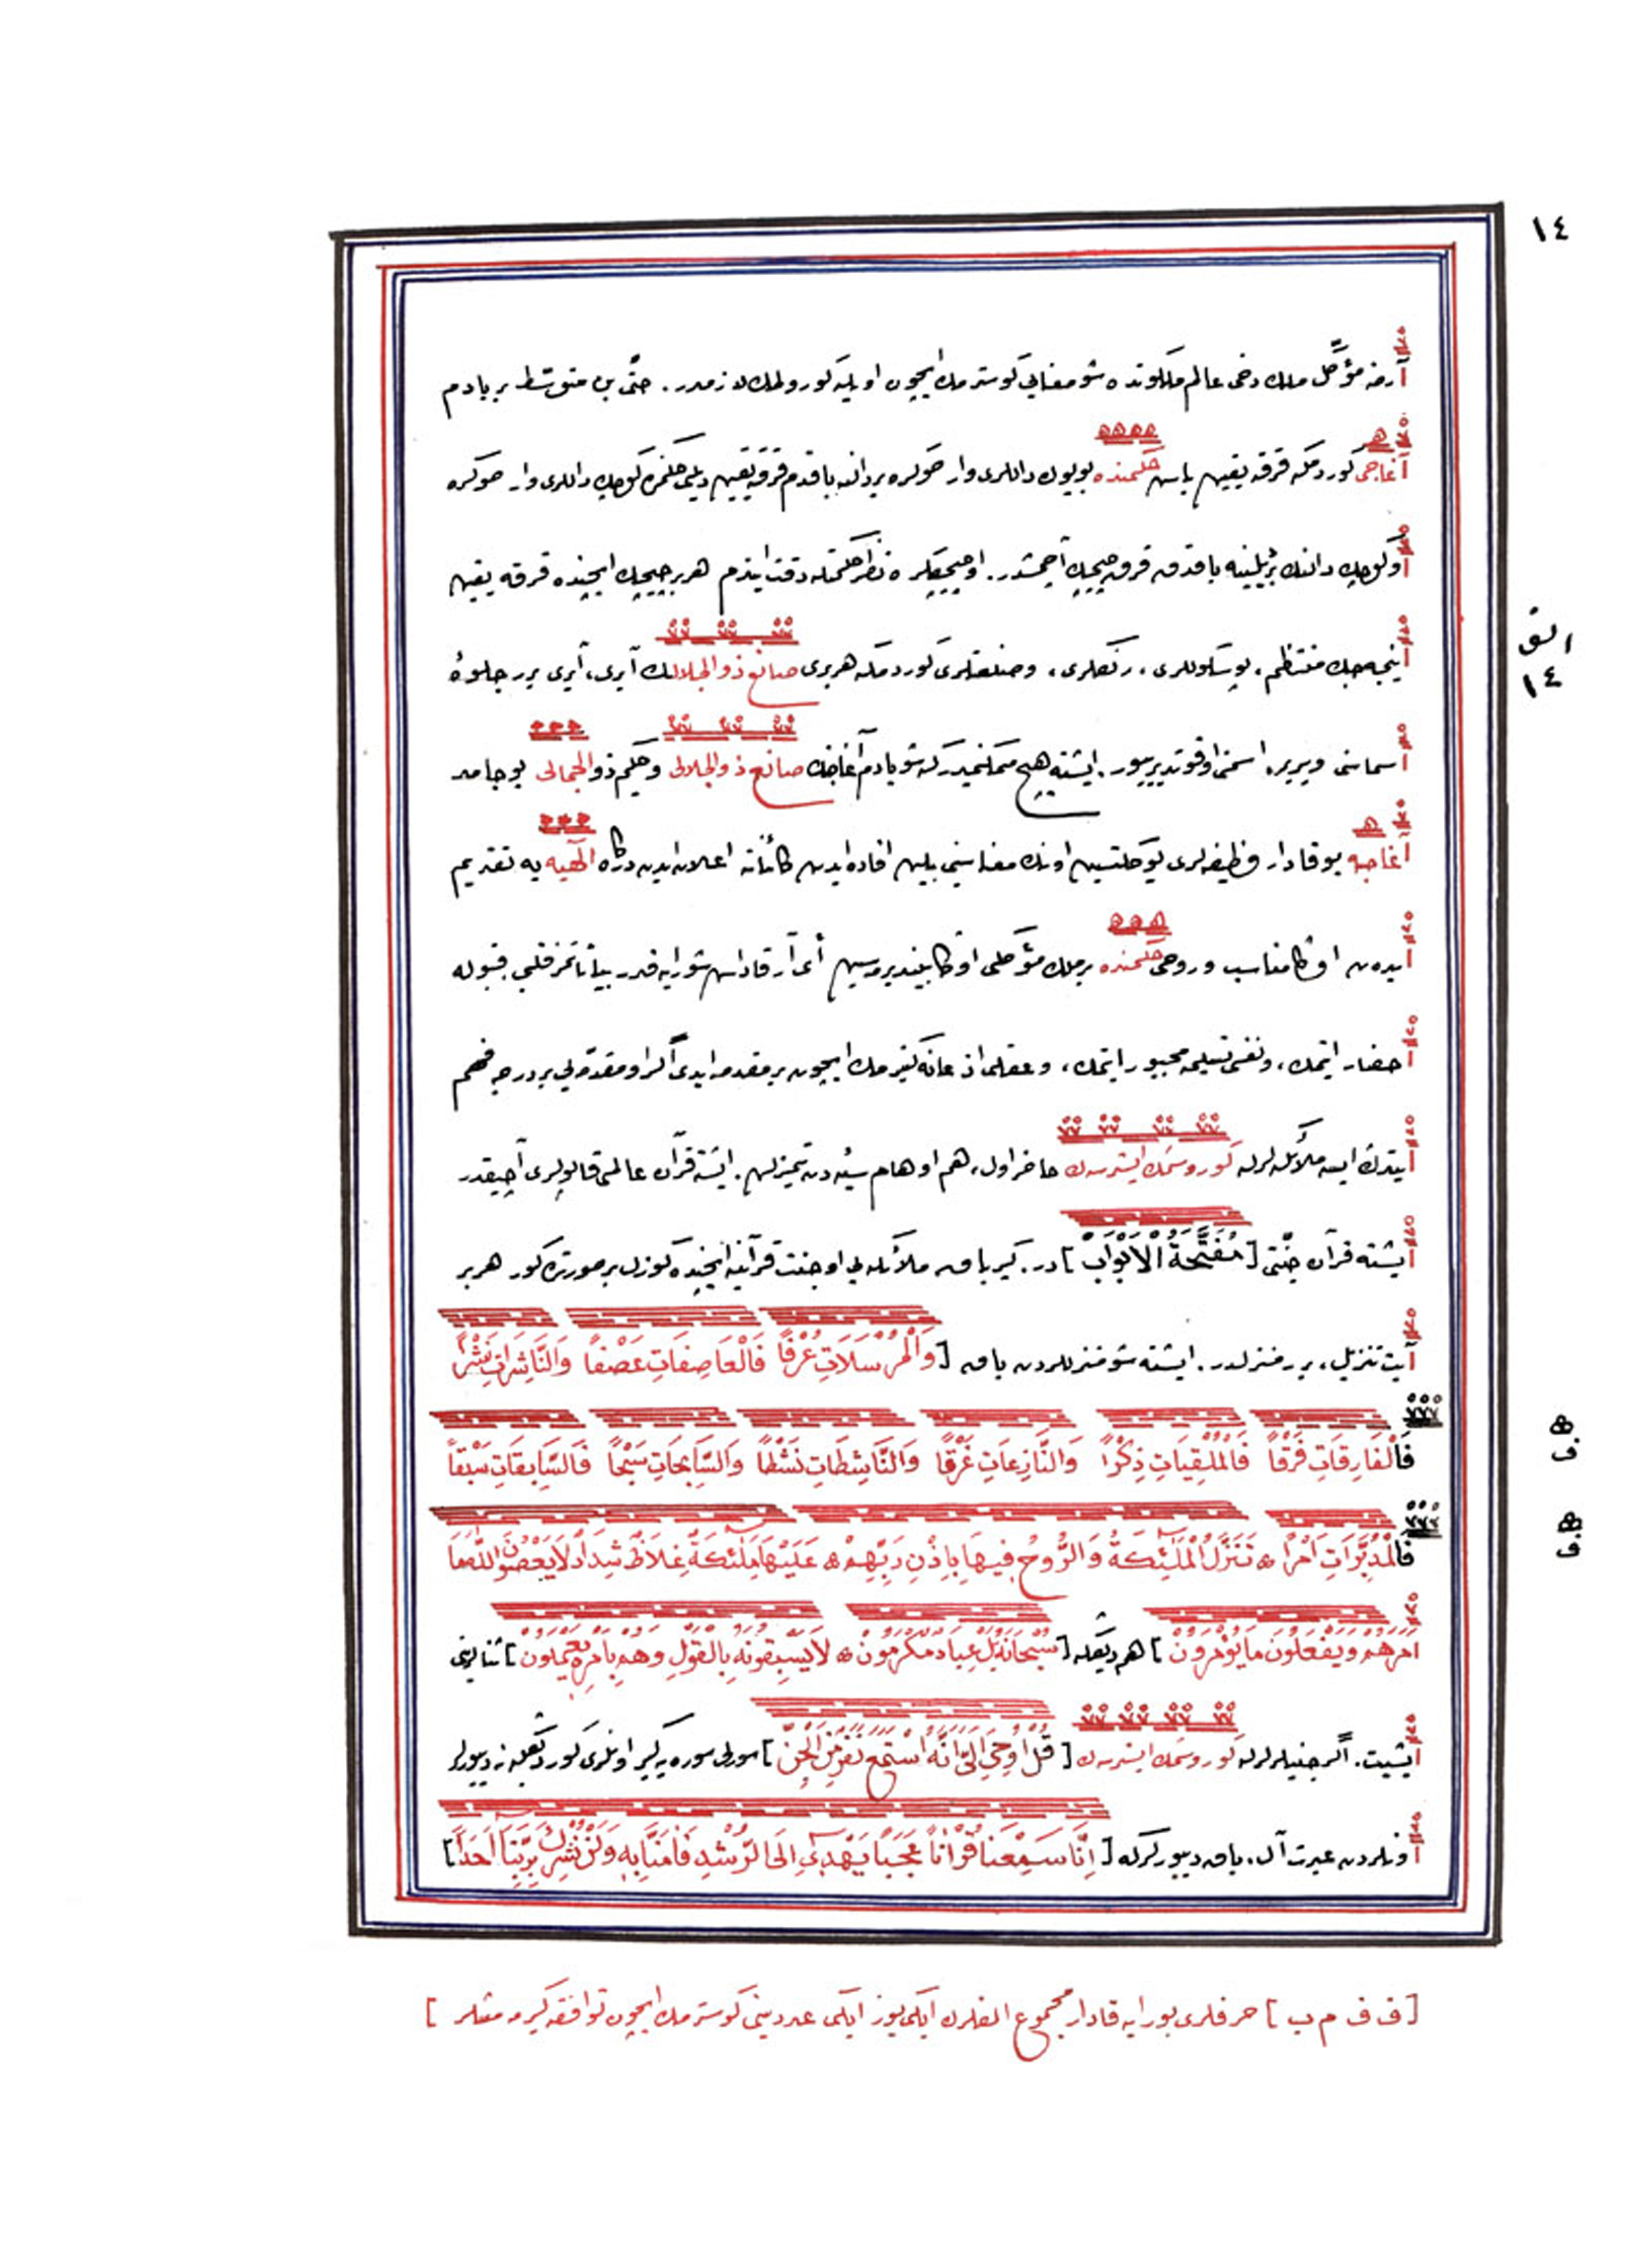 ١٤
أرضه مؤكّل ملك دخى عالم ملكوتده شو معنايى كوسترمك ايچون اويله كورولمك لازمدر. حتّى بن متوسّط بر بادم
آغاجى كوردمكه قرقه يقين باش حكمنده بويوك داللرى وار صوكره بر دالنه باقدم قرقه يقين ديلى حكمنده كوچك داللرى وار صوكره
او كوچك دالنك بر ديلينه باقدم قرق چيچك آچمشدر. او چيچكلره نظر حكمتله دقت ايتدم هر بر چيچك ايچنده قرقه يقين
اينجه جك منتظم، پوسكوللرى، رنكلرى، وصنعتلرى كوردمكه هر برى صانع ذوالجلالك آيرى، آيرى برر جلوۀ
اسماسنى ويرير. اسمنى اوقوتديرييور. ايشته هيچ ممكنميدركه شو بادم آغاجنك صانع ذوالجلالى وحكيم ذوالجمالى بو جامد
آغاجه بو قادار وظيفه لرى يوكلتسين اونك معناسنى بيلن افاده ايدن كائناته اعلان ايدن دركاه الٓهيه يه تقديم
ايدەن اوڭا مناسب وروحى حكمنده بر ملك مؤكلى اوڭا بينديرمه سين أى آرقاداش شورايه قدر بياناتمز قلبى قبوله
احضار ايتمك، ونفسى تسليمه مجبور ايتمك، وعقلى اذعانه كتيرمك ايچون بر مقدمه ايدى اگر او مقدّمه يى بر درجه فهم
ايتدك ايسه ملائكه لرله كوروشمك ايسترسه ك حاضر اول، هم اوهام سيّئه دن تميزلن. ايشته قرآن عالمى قاپولرى آچيقدر
ايشته قرآن جنّتى [مُفَتَّحَةُ الْاَبْوَابْ] در. كير باق ملائكه يى او جنت قرآنيه ايچنده كوزل بر صورتده كور هر بر
آيت تنزيل، بر منزلدر. ايشته شو منزللردن باق [وَالْمُرْسَلَاتِ عُرْفًا فَالْعَاصِفَاتِ عَصْفًا وَالنَّاشِرَاتِ نَشْرًا
فَالْفَارِقَاتِ فَرْقًا فَالْمُلْقِيَاتِ ذِكْرًا وَالنَّازِعَاتِ غَرْقًا وَالنَّاشِطَاتِ نَشْطًا وَالسَّابِحَاتِ سَبْحًا فَالسَّابِقَاتِ سَبْقًا
فَالْمُدَبِّرَاتِ اَمْرًا ۞ تَنَزَّلُ الْمَلٰٓئِكَةُ وَالرُّوحُ فِيهَا بِاِذْنِ رَبِّهِمْ ۞ عَلَيْهَا مَلٰٓئِكَةٌ غِلَاظٌ شِدَادٌ لَا يَعْصُونَ اللّٰهَ مَا
اَمَرَهُمْ وَيَفْعَلُونَ مَا يُؤْمَرُونْ] هم ديڭله [سُبْحَانَهُ بَلْ عِبَادٌ مُكْرَمُونَ ۞ لَا يَسْبِقُونَهُ بِالْقَوْلِ وَهُمْ بِاَمْرِهِ يَعْمَلُونْ] ثنالرينى
ايشيت. اگر جنيلرله كوروشمك ايسترسه ك [قُلْ اُوحِيَ اِلَيَّ اَنَّهُ اسْتَمَعَ نَفَرٌ مِنَ الْجِنِّ] سورلى سوره يه كير اونلرى كور ديڭله نه ديييورلر
اونلردن عبرت آل، باق ديييورلركه [اِنَّا سَمِعْنَا قُرْاٰنًا عَجَبًا يَهْدِٓي اِلَى الرُّشْدِ فَاٰمَنَّا بِهِ وَلَنْ نُشْرِكَ بِرَبِّنَا اَحَدًا]
الف
١٤
ف
ف
[ف ف م ب] حرفلرى بورايه قادار مجموع الفلرك ايكى يوز ايكى عددينى كوسترمك ايچون توافقه كيرمه مشلر]